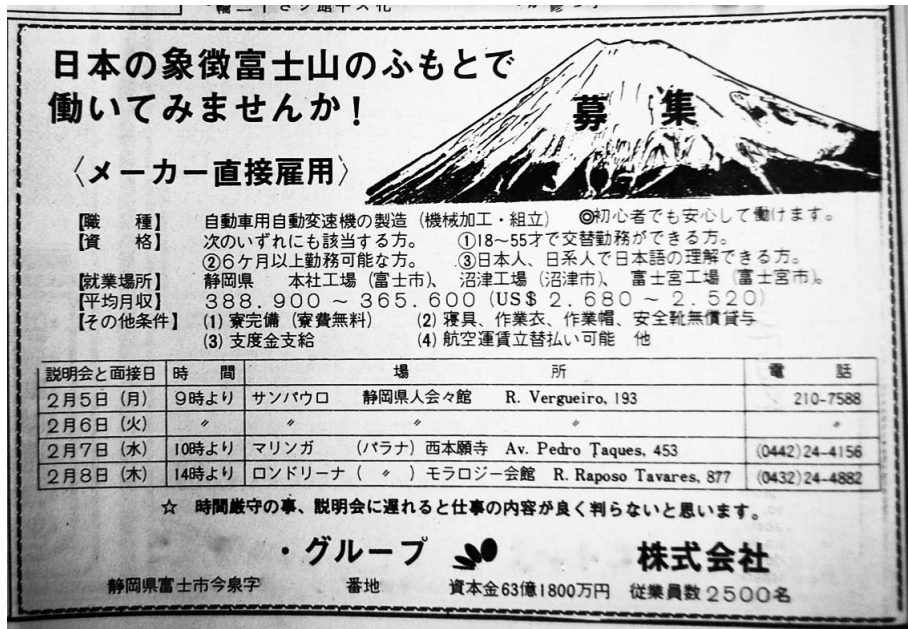 日本の象徴富士山のふもとで
働いてみませんか!
募集
〈メーカー直接雇用〉
【職　種】 自動車用自動変速機の製造（機械加工・組立） ◎初心者でも安心して働けます。
【資　格】 次のいずれにも該当する方。 ①18~55才で交替勤務ができる方。
②6ケ月以上勤務可能な方。 ③日本人、日系人で日本語の理解できる方。
【就業場所】 静岡県　本社工場（富士市）、沼津工場（沼津市）、富士宮工場（富士宮市）。
【平均月収】 388.900~365.600(US$ 2.680~2.520)
【その他条件】 (1) 寮完備（寮費無料） (2) 寝具、作業衣、作業帽、安全靴無償貸与
(3) 支度金支給 (4) 航空運賃立替払い可能　他
説明会と面接日 時　間 場　所 電　話
2月5日（月） 9時より サンパウロ 静岡県人会々館 R. Vergueiro, 193 210-7588
2月6日（火） 〃 〃 〃 〃 〃
2月7日（水） 10時より マリンガ （パラナ）西本願寺 Av. Pedro Taques, 453 (0442)24-4156
2月8日（木） 14時より ロンドリーナ（ 〃 ）モラロジー会館 R. Raposo Tavares, 877 (0432)24-4882
☆ 時間厳守の事、説明会に遅れると仕事の内容が良く判らないと思います。
・グループ 株式会社
静岡県富士市今泉字 番地 資本金63億1800万円 従業員数2500名